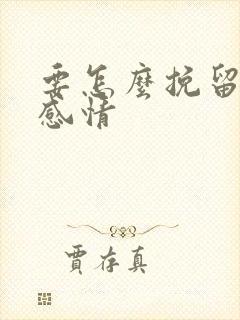 要怎麼挽留
感情
賈存真